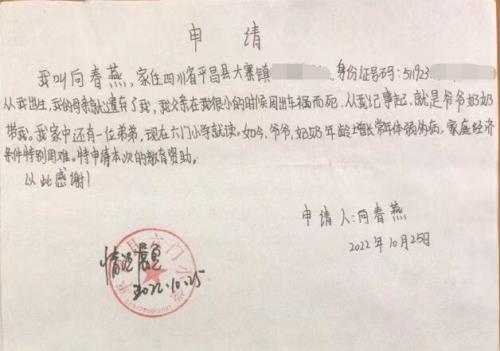 申请
我叫向春燕，家住四川省平昌县大寨镇 身份证号码：511923
从我出生，我的母亲就遗弃了我，我父亲在我很小的时候因出车祸而死，从我记事起，就是爷爷奶奶
带我。我家中还有一位弟弟，现在六门小学就读。如今，爷爷，奶奶年龄增长常年体弱多病，家庭经济
条件特别困难。特申请本次的教育资助。
以此感谢！
申请人：向春燕
2022年10月25日
情况属实
2022.10.25
县六门小学